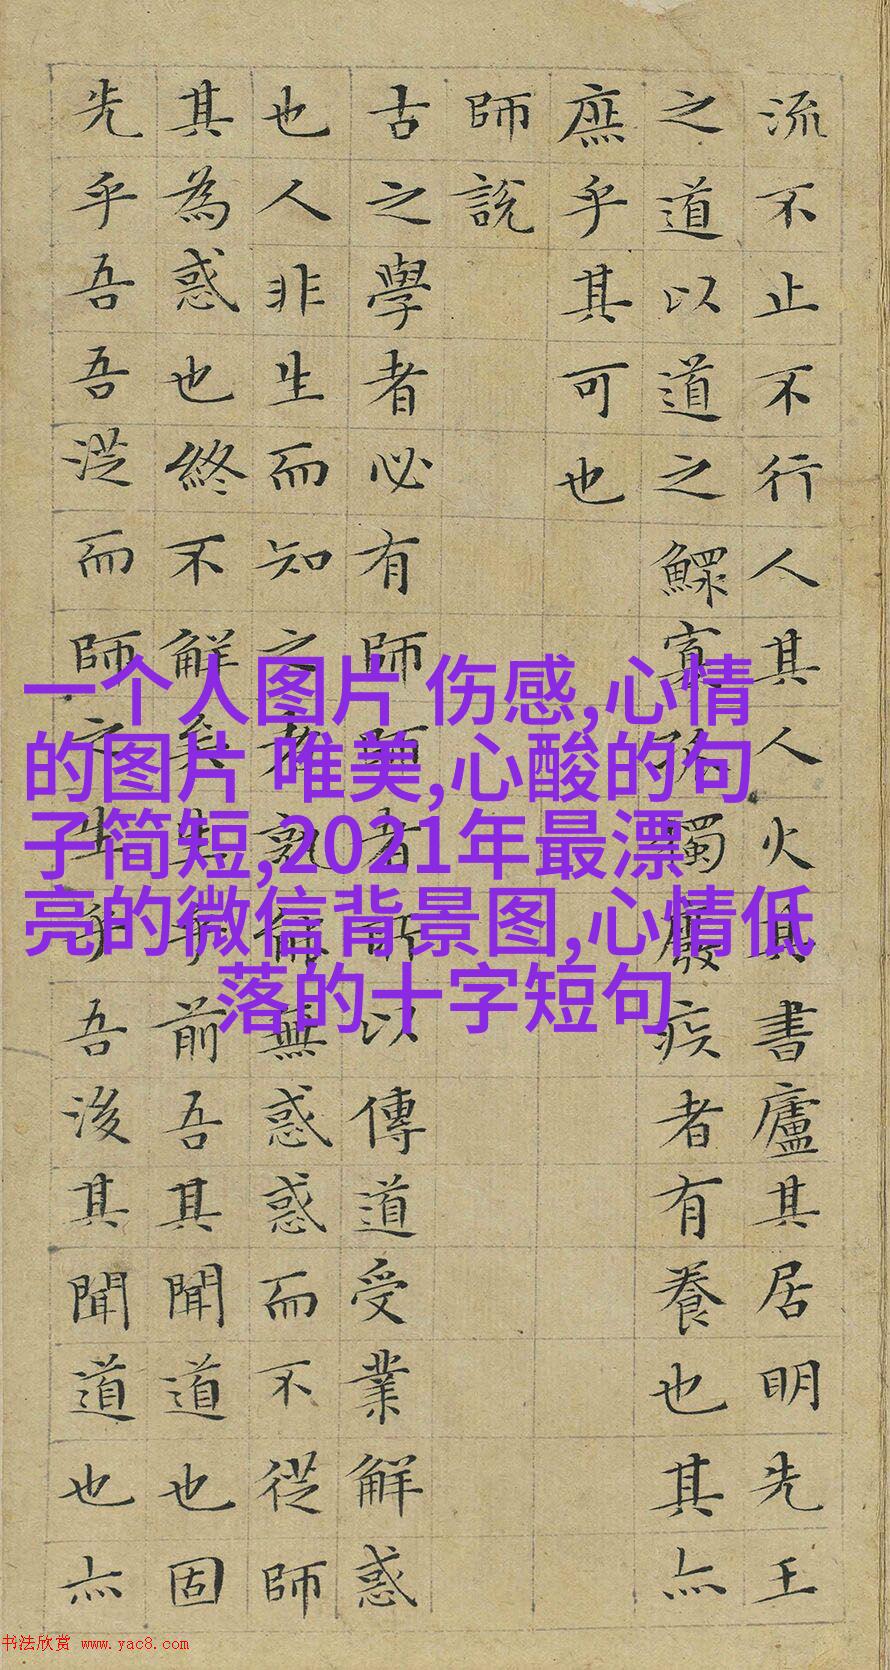 流不止不行人其人火其書廬其居明先王
之道以道之鰥寡孤獨廢疾者有養也其亦
庶乎其可也
師說
古之學者必有師師者所以傳道受業解惑
也人非生而知之者孰能無惑惑而不從師
其為惑也終不解矣生乎前吾其聞道也固
先乎吾吾從而師之生乎吾後其聞道也亦
一个人图片 伤感,心情
的图片 唯美,心酸的句
子简短,2021年最漂
亮的微信背景图,心情低
落的十字短句
书法欣赏 www.yac8.com